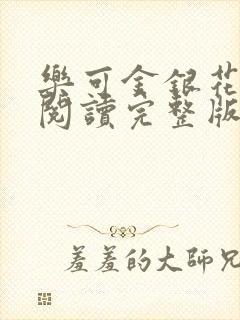 樂可金銀花
閱讀完整版
羞羞的大師兄